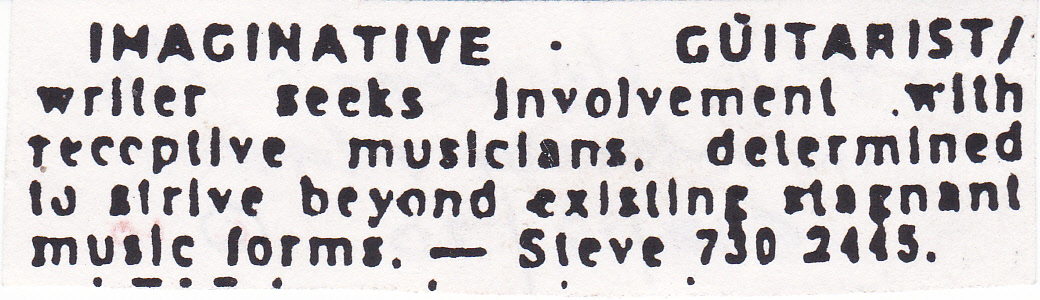 IMAGINATIVE GUITARIST/
writer seeks involvement with
receptive musicians, determined
to strive beyond existing stagnant
music forms. — Steve 730 2445.